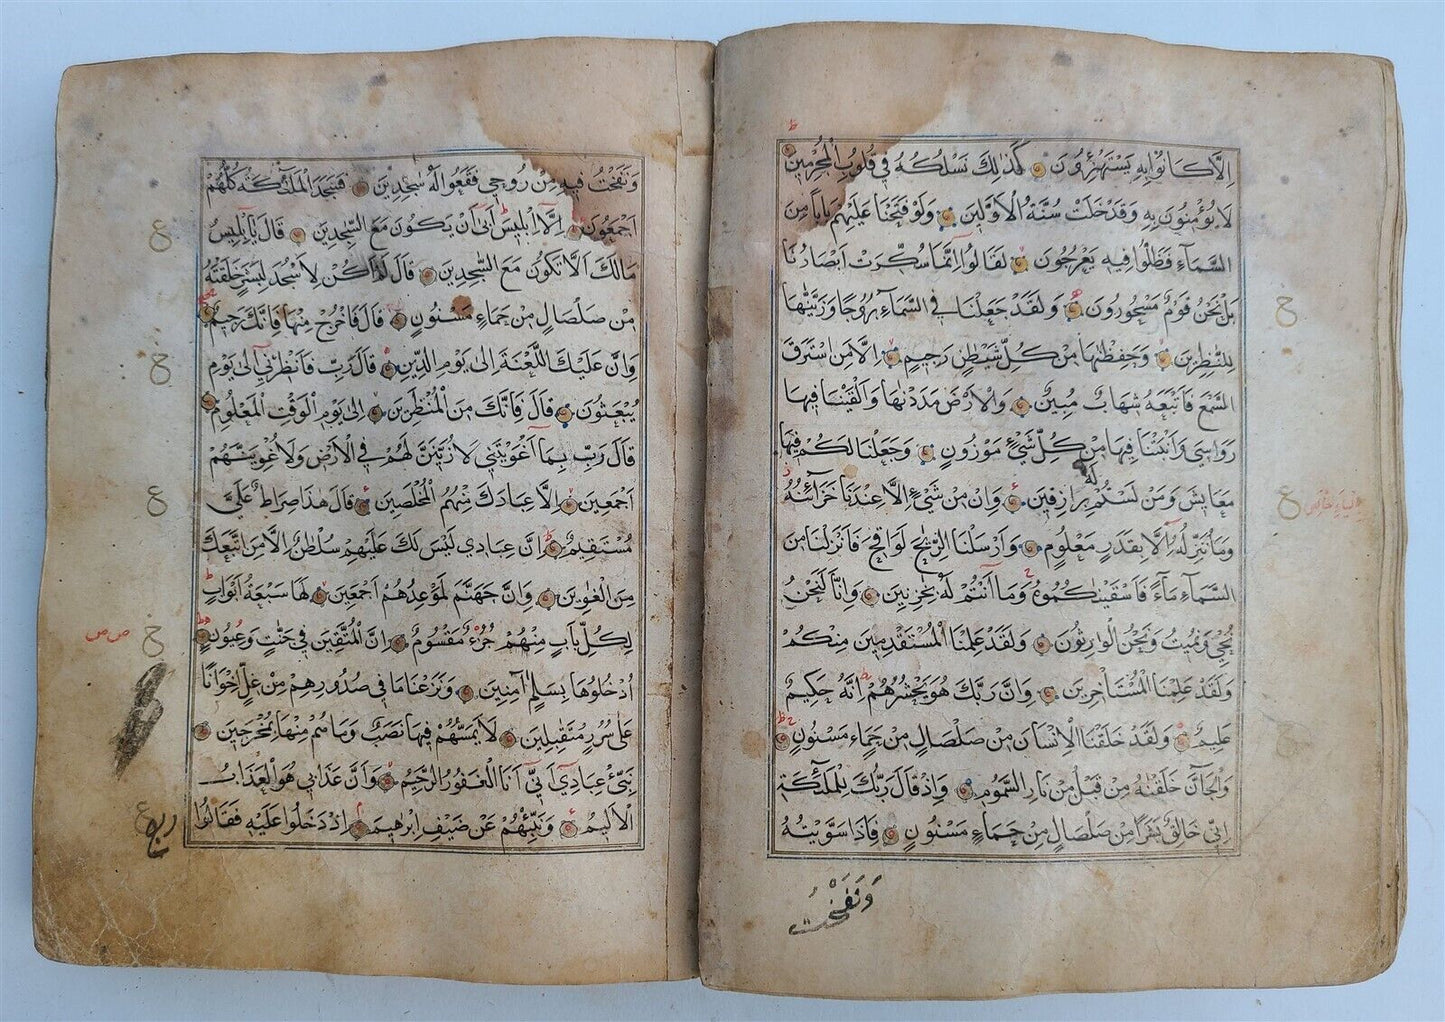 اِلَّا كَانُوا بِهِ يَسْتَهْزِؤُنَ كَذٰلِكَ نَسْلُكُهُ فِي قُلُوبِ الْمُجْرِمِينَ
لَا يُؤْمِنُونَ بِهِ وَقَدْ خَلَتْ سُنَّةُ الْاَوَّلِينَ وَلَوْ فَتَحْنَا عَلَيْهِمْ بَابًا مِنَ
السَّمَاءِ فَظَلُّوا فِيهِ يَعْرُجُونَ لَقَالُوا اِنَّمَا سُكِّرَتْ اَبْصَارُنَا
بَلْ نَحْنُ قَوْمٌ مَسْحُورُونَ وَلَقَدْ جَعَلْنَا فِي السَّمَاءِ بُرُوجًا وَزَيَّنَّاهَا
لِلنّٰظِرِينَ وَحَفِظْنٰهَا مِنْ كُلِّ شَيْطٰنٍ رَجِيمٍ اِلَّا مَنِ اسْتَرَقَ
السَّمْعَ فَاَتْبَعَهُ شِهَابٌ مُبِينٌ وَالْاَرْضَ مَدَدْنٰهَا وَاَلْقَيْنَا فِيهَا
رَوَاسِيَ وَاَنْبَتْنَا فِيهَا مِنْ كُلِّ شَيْءٍ مَوْزُونٍ وَجَعَلْنَا لَكُمْ فِيهَا
مَعَايِشَ وَمَنْ لَسْتُمْ لَهُ بِرَازِقِينَ وَاِنْ مِنْ شَيْءٍ اِلَّا عِنْدَنَا خَزَآئِنُهُ
وَمَا نُنَزِّلُهُ اِلَّا بِقَدَرٍ مَعْلُومٍ وَاَرْسَلْنَا الرِّيٰحَ لَوَاقِحَ فَاَنْزَلْنَا مِنَ
السَّمَاءِ مَاءً فَاَسْقَيْنٰكُمُوهُ وَمَا اَنْتُمْ لَهُ بِخٰزِنِينَ وَاِنَّا لَنَحْنُ
نُحْيِي وَنُمِيتُ وَنَحْنُ الْوَارِثُونَ وَلَقَدْ عَلِمْنَا الْمُسْتَقْدِمِينَ مِنْكُمْ
وَلَقَدْ عَلِمْنَا الْمُسْتَاْخِرِينَ وَاِنَّ رَبَّكَ هُوَ يَحْشُرُهُمْ اِنَّهُ حَكِيمٌ
عَلِيمٌ وَلَقَدْ خَلَقْنَا الْاِنْسَانَ مِنْ صَلْصَالٍ مِنْ حَمَاءٍ مَسْنُونٍ
وَالْجَآنَّ خَلَقْنٰهُ مِنْ قَبْلُ مِنْ نَارِ السَّمُومِ وَاِذْ قَالَ رَبُّكَ لِلْمَلٰٓئِكَةِ
اِنِّي خَالِقٌ بَشَرًا مِنْ صَلْصَالٍ مِنْ حَمَاءٍ مَسْنُونٍ فَاِذَا سَوَّيْتُهُ
وَنَفَخْتُ
وَنَفَخْتُ فِيهِ مِنْ رُوحِي فَقَعُوا لَهُ سٰجِدِينَ فَسَجَدَ الْمَلٰٓئِكَةُ كُلُّهُمْ
اَجْمَعُونَ اِلَّا اِبْلِيسَ اَبٰى اَنْ يَكُونَ مَعَ السّٰجِدِينَ قَالَ يَآ اِبْلِيسُ
مَا لَكَ اَلَّا تَكُونَ مَعَ السّٰجِدِينَ قَالَ لَمْ اَكُنْ لِاَسْجُدَ لِبَشَرٍ خَلَقْتَهُ
مِنْ صَلْصَالٍ مِنْ حَمَاءٍ مَسْنُونٍ قَالَ فَاخْرُجْ مِنْهَا فَاِنَّكَ رَجِيمٌ
وَاِنَّ عَلَيْكَ اللَّعْنَةَ اِلٰى يَوْمِ الدِّينِ قَالَ رَبِّ فَاَنْظِرْنِي اِلٰى يَوْمِ
يُبْعَثُونَ قَالَ فَاِنَّكَ مِنَ الْمُنْظَرِينَ اِلٰى يَوْمِ الْوَقْتِ الْمَعْلُومِ
قَالَ رَبِّ بِمَا اَغْوَيْتَنِي لَاُزَيِّنَنَّ لَهُمْ فِي الْاَرْضِ وَلَاُغْوِيَنَّهُمْ
اَجْمَعِينَ اِلَّا عِبَادَكَ مِنْهُمُ الْمُخْلَصِينَ قَالَ هٰذَا صِرَاطٌ عَلَيَّ
مُسْتَقِيمٌ اِنَّ عِبَادِي لَيْسَ لَكَ عَلَيْهِمْ سُلْطٰنٌ اِلَّا مَنِ اتَّبَعَكَ
مِنَ الْغٰوِينَ وَاِنَّ جَهَنَّمَ لَمَوْعِدُهُمْ اَجْمَعِينَ لَهَا سَبْعَةُ اَبْوَابٍ
لِكُلِّ بَابٍ مِنْهُمْ جُزْءٌ مَقْسُومٌ اِنَّ الْمُتَّقِينَ فِي جَنّٰتٍ وَعُيُونٍ
اُدْخُلُوهَا بِسَلٰمٍ اٰمِنِينَ وَنَزَعْنَا مَا فِي صُدُورِهِمْ مِنْ غِلٍّ اِخْوَانًا
عَلٰى سُرُرٍ مُتَقٰبِلِينَ لَا يَمَسُّهُمْ فِيهَا نَصَبٌ وَمَا هُمْ مِنْهَا بِمُخْرَجِينَ
نَبِّئْ عِبَادِي اَنِّي اَنَا الْغَفُورُ الرَّحِيمُ وَاَنَّ عَذَابِي هُوَ الْعَذَابُ
الْاَلِيمُ وَنَبِّئْهُمْ عَنْ ضَيْفِ اِبْرٰهِيمَ اِذْ دَخَلُوا عَلَيْهِ فَقَالُوا